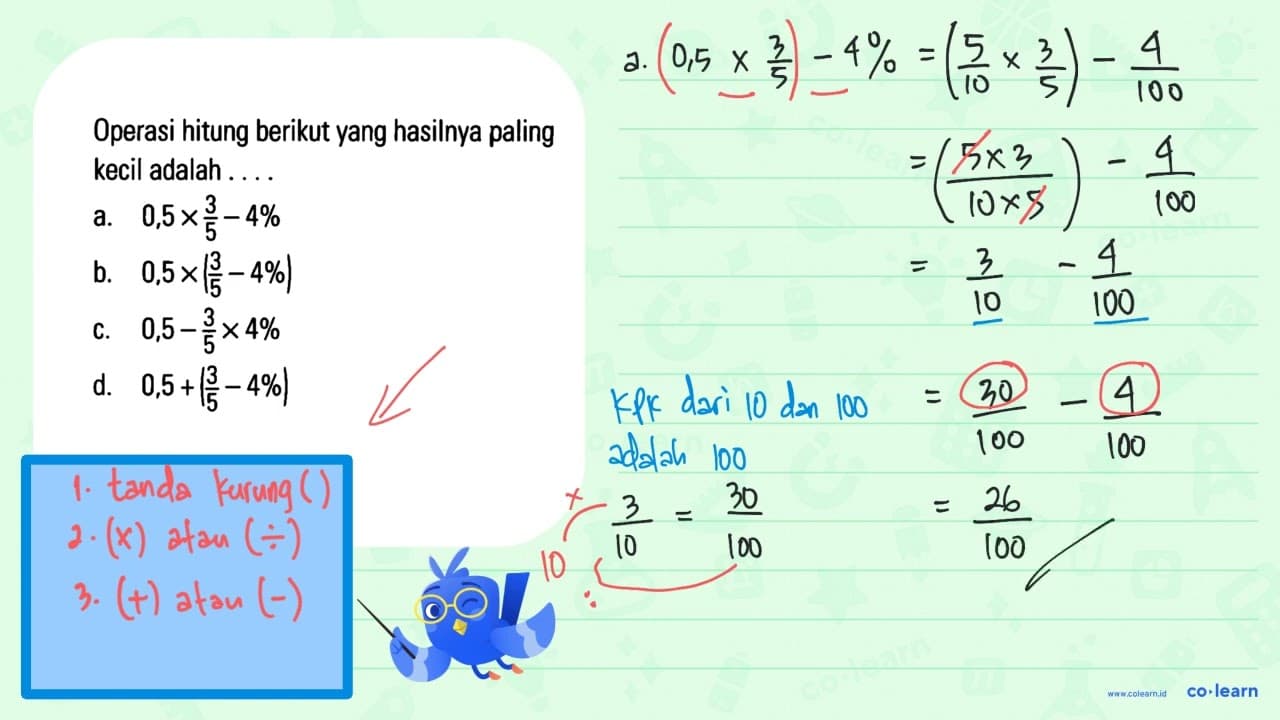 Operasi hitung berikut yang hasilnya paling
kecil adalah . . . .
a. 0,5 × 3/5 − 4%
b. 0,5 × (3/5 − 4%)
c. 0,5 − 3/5 × 4%
d. 0,5 + (3/5 − 4%)
1. tanda kurung ( )
2. (×) atau (÷)
3. (+) atau (-)
a. (0,5 × 3/5) − 4% = (5/10 × 3/5) − 4/100
= (5×3/10×5) − 4/100
= 3/10 − 4/100
KPK dari 10 dan 100
adalah 100
= 30/100 − 4/100
× 10 :
3/10 = 30/100
= 26/100
www.colearn.id co·learn